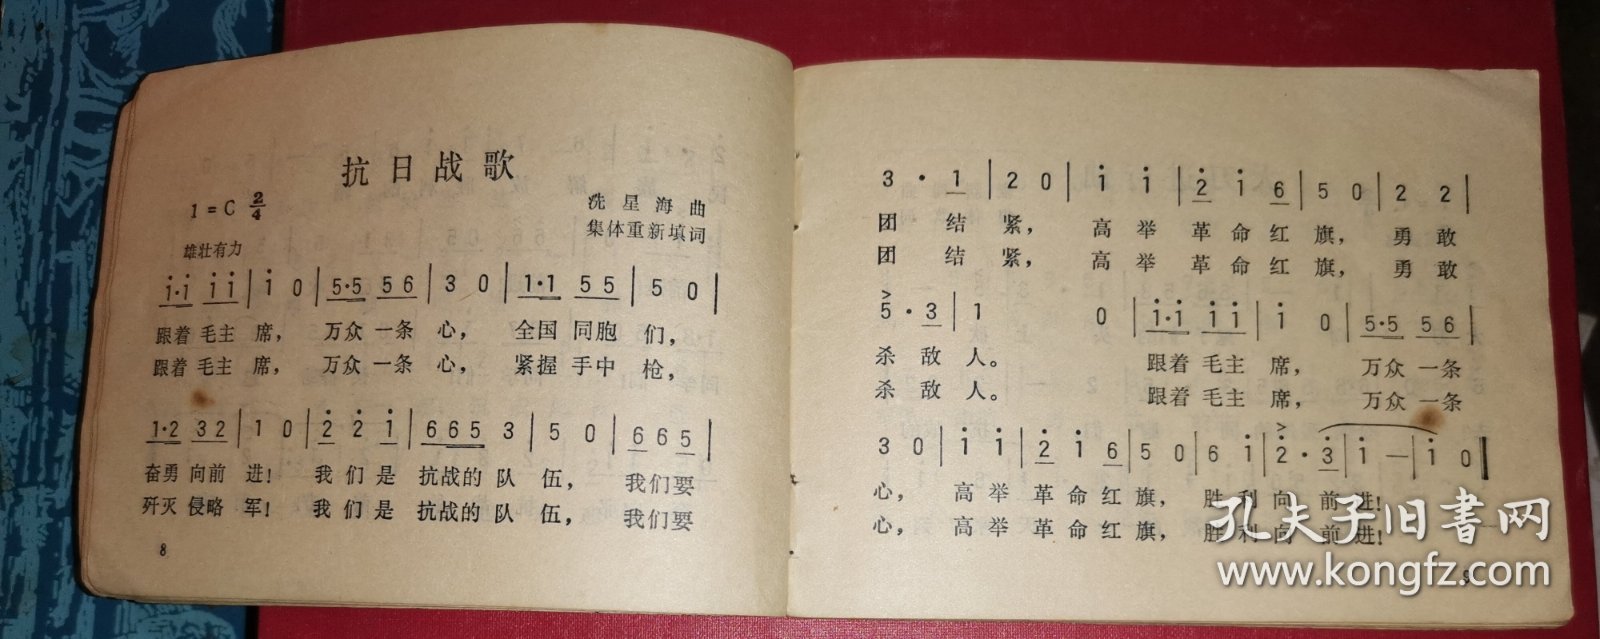 抗日战歌
1=C 2/4
冼星海 曲
集体重新填词
雄壮有力
i·i i i | i 0 | 5·5 5 6 | 3 0 | 1·1 5 5 | 5 0 |
跟着 毛主 席， 万众 一条 心， 全国 同胞 们，
跟着 毛主 席， 万众 一条 心， 紧握 手中 枪，
1·2 3 2 | 1 0 | 2̇ 2̇ i | 6 6 5 3 | 5 0 | 6 6 5 |
奋勇 向前 进！ 我们是 抗战的 队 伍， 我们要
歼灭 侵略 军！ 我们是 抗战的 队 伍， 我们要
8
3 · 1 | 2 0 | i i | 2̇ i 6 | 5 0 | 2 2 |
团 结 紧， 高 举 革 命 红 旗， 勇 敢
团 结 紧， 高 举 革 命 红 旗， 勇 敢
5 · 3 | 1 0 | i·i i i | i 0 | 5·5 5 6 |
杀 敌 人。 跟着 毛主 席， 万众 一条
杀 敌 人。 跟着 毛主 席， 万众 一条
3 0 | i i | 2̇ i 6 | 5 0 | 6 i | 2̇ · 3̇ | i — | i 0 ‖
心， 高 举 革 命 红 旗， 胜 利 向 前 进！
心， 高 举 革 命 红 旗， 胜 利 向 前 进！
9
孔夫子旧书网
www.kongfz.com